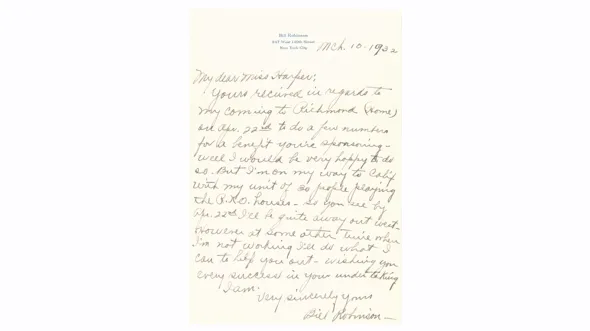 Bill Robinson
New York City
Mch. 10-1932
My dear Miss Harper;
Yours received in regards to
my coming to Richmond (home)
on Apr. 22nd to do a few numbers
for a benefit you're sponsoring-
well I would be very happy to do
so. But I'm on my way to Calif
with my unit of 30 people playing
the R.K.O. houses- so you see by
Apr. 22nd I'll be quite away out west-
However at some other time when
I'm not working I'll do what I
can to help you out- wishing you
every success in your undertaking
I am.
Very sincerely yours
Bill Robinson-